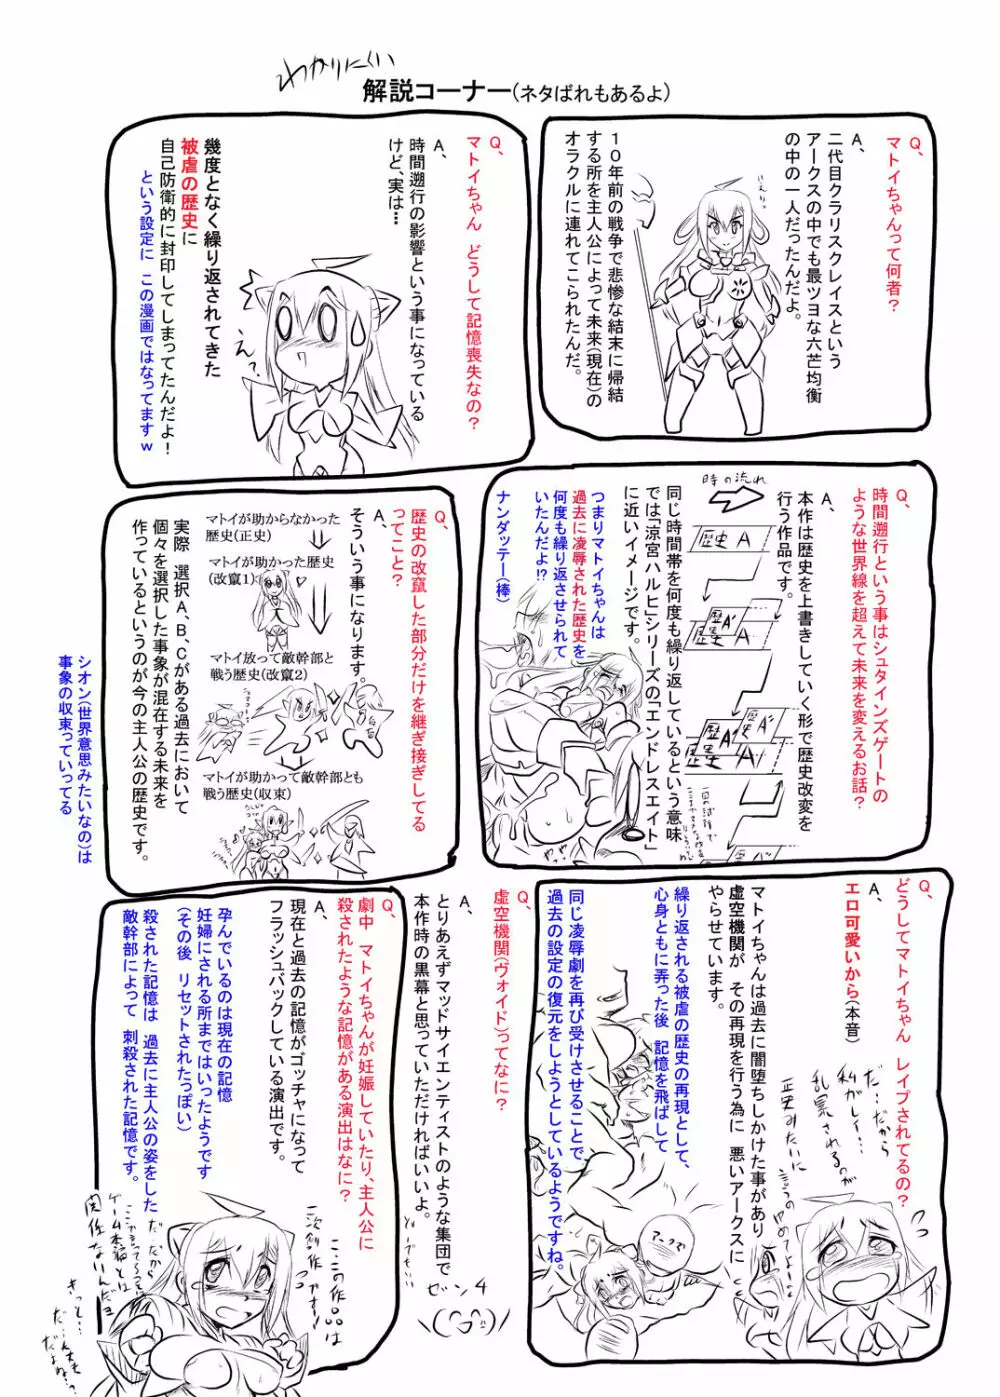 わかりにくい
解説コーナー(ネタばれもあるよ)
Q、
マトイちゃんって何者?
A、
二代目クラリスクレイスという
アークスの中でも最ツヨな六芒均衡
の中の一人だったんだよ。
10年前の戦争で悲惨な結末に帰結
する所を主人公によって未来(現在)の
オラクルに連れてこられたんだ。
Q、
マトイちゃん どうして記憶喪失なの?
A、
時間遡行の影響という事になっている
けど、実は…
幾度となく繰り返されてきた
被虐の歴史に
自己防衛的に封印してしまってたんだよ!
という設定に この漫画ではなってますw
え?
Q、
時間遡行という事はシュタインズゲートの
ような世界線を超えて未来を変えるお話?
A、
本作は歴史を上書きしていく形で歴史改変を
行う作品です。
時の流れ
歴史 A
歴史 A'
同じ時間帯を何度も繰り返しているという意味
では「涼宮ハルヒ」シリーズの「エンドレスエイト」
に近いイメージです。
つまりマトイちゃんは
過去に凌辱された歴史を
何度も繰り返させられて
いたんだよ!?
ナンダッテー(棒)
Q、
歴史の改竄した部分だけを継ぎ接ぎしてる
ってこと?
A、
そういう事になります。
マトイが助からなかった
歴史(正史)
マトイが助かった歴史
(改竄1)
マトイ放って敵幹部と
戦う歴史(改竄2)
マトイが助かって敵幹部とも
戦う歴史(収束)
実際 選択A、B、Cがある過去において
個々を選択した事象が混在する未来を
作っているというのが今の主人公の歴史です。
シオン(世界意思みたいなの)は
事象の収束っていってる
Q、
どうしてマトイちゃん レイプされてるの?
A、
エロ可愛いから(本音)
マトイちゃんは過去に闇堕ちしかけた事があり
虚空機関が その再現を行う為に 悪いアークスに
やらせています。
繰り返される被虐の歴史の再現として、
心身ともに弄った後 記憶を飛ばして
同じ凌辱劇を再び受けさせることで
過去の設定の復元をしようとしているようですね。
だ…だから
私がレイ…
乱暴されるのが
正史みたいに
言うのやめてよぉ
Q、
虚空機関(ヴォイド)ってなに?
A、
とりあえずマッドサイエンティストのような集団で
本作時の黒幕と思っていただければいいよ。
Q、
劇中 マトイちゃんが妊娠していたり、主人公に
殺されたような記憶がある演出はなに?
A、
現在と過去の記憶がゴッチャになって
フラッシュバックしている演出です。
孕んでいるのは現在の記憶
妊婦にされる所まではいったようです
(その後 リセットされたっぽい)
殺された記憶は 過去に主人公の姿をした
敵幹部によって 刺殺された記憶です。
二次創作です!
だ、だから
ゲーム本編とは
関係ないんだよ
きっと…